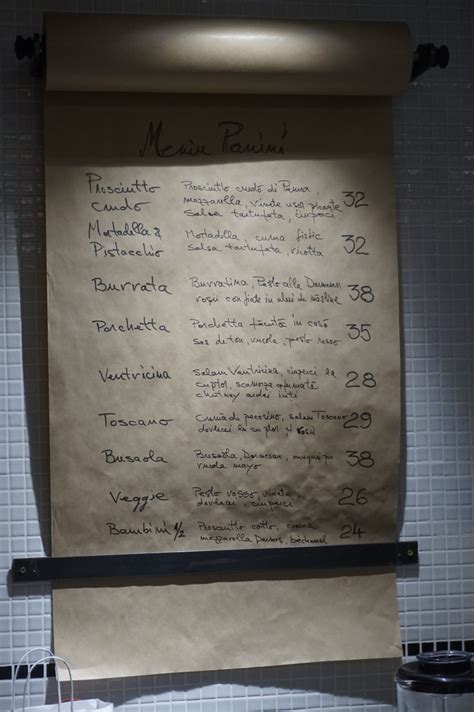 Meniu Panini
Prosciutto crudo
Prosciutto crudo di Parma,
mozzarella, vinete usor picante
salsa tartufata, ciuperci
32
Mortadella &
Pistacchio
Mortadella, crema fistic
salsa tartufata, ricotta
32
Burrata
Burratina, Pesto alla
rosii confiate in ulei de măsline
38
Porchetta
Porchetta făcută în casă
sos de ton, rucola, pesto rosso
35
Ventricina
Salam Ventricina, ciuperci la
cuptor, scamorza afumată
chutney ardei iuti
28
Toscano
Cremă de pecorino, salam Toscano
dovlecei la cuptor și rosii
29
Busaola
Busaola, Parmesan,
rucola mayo
38
Veggie
Pesto rosso, vinete,
dovlecei, ciuperci
26
Bambini 1/2
Prosciutto cotto, crema
mozzarella béchamel
24